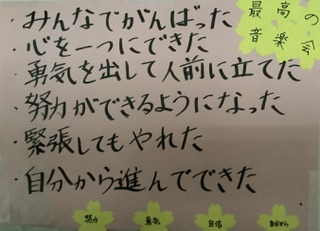 最高の
音楽会
・みんなでがんばった
・心を一つにできた
・勇気を出して人前に立てた
・努力ができるようになった
・緊張してもやれた
・自分から進んでできた
努力
勇気
自信